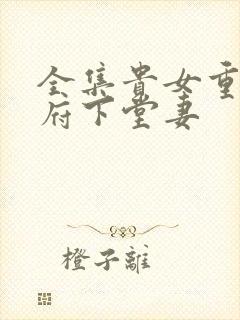 全集貴女重
府下堂妻
橙子離